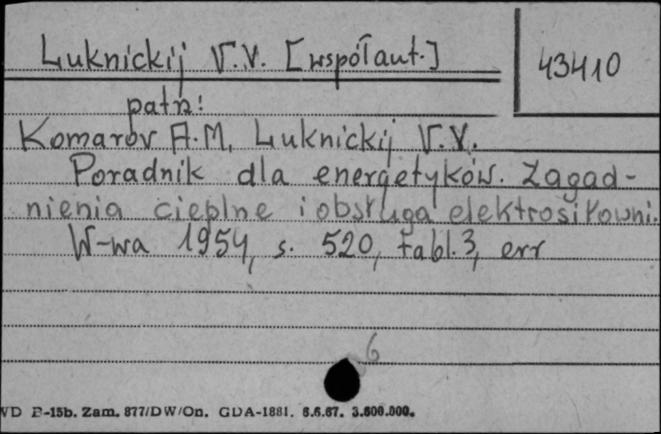 Łuknickij V.V. [współaut.]
43410
patrz:
Komarov A.M, Łuknickij V.V.
Poradnik dla energetyków. Zagad-
nienia cieplne i obsługa elektrosiłowni.
W-wa 1954, s. 520, tabl. 3, err
6
WD B-15b. Zam. 877/DW/On. GDA-1881. 6.6.67. 3.600.000.